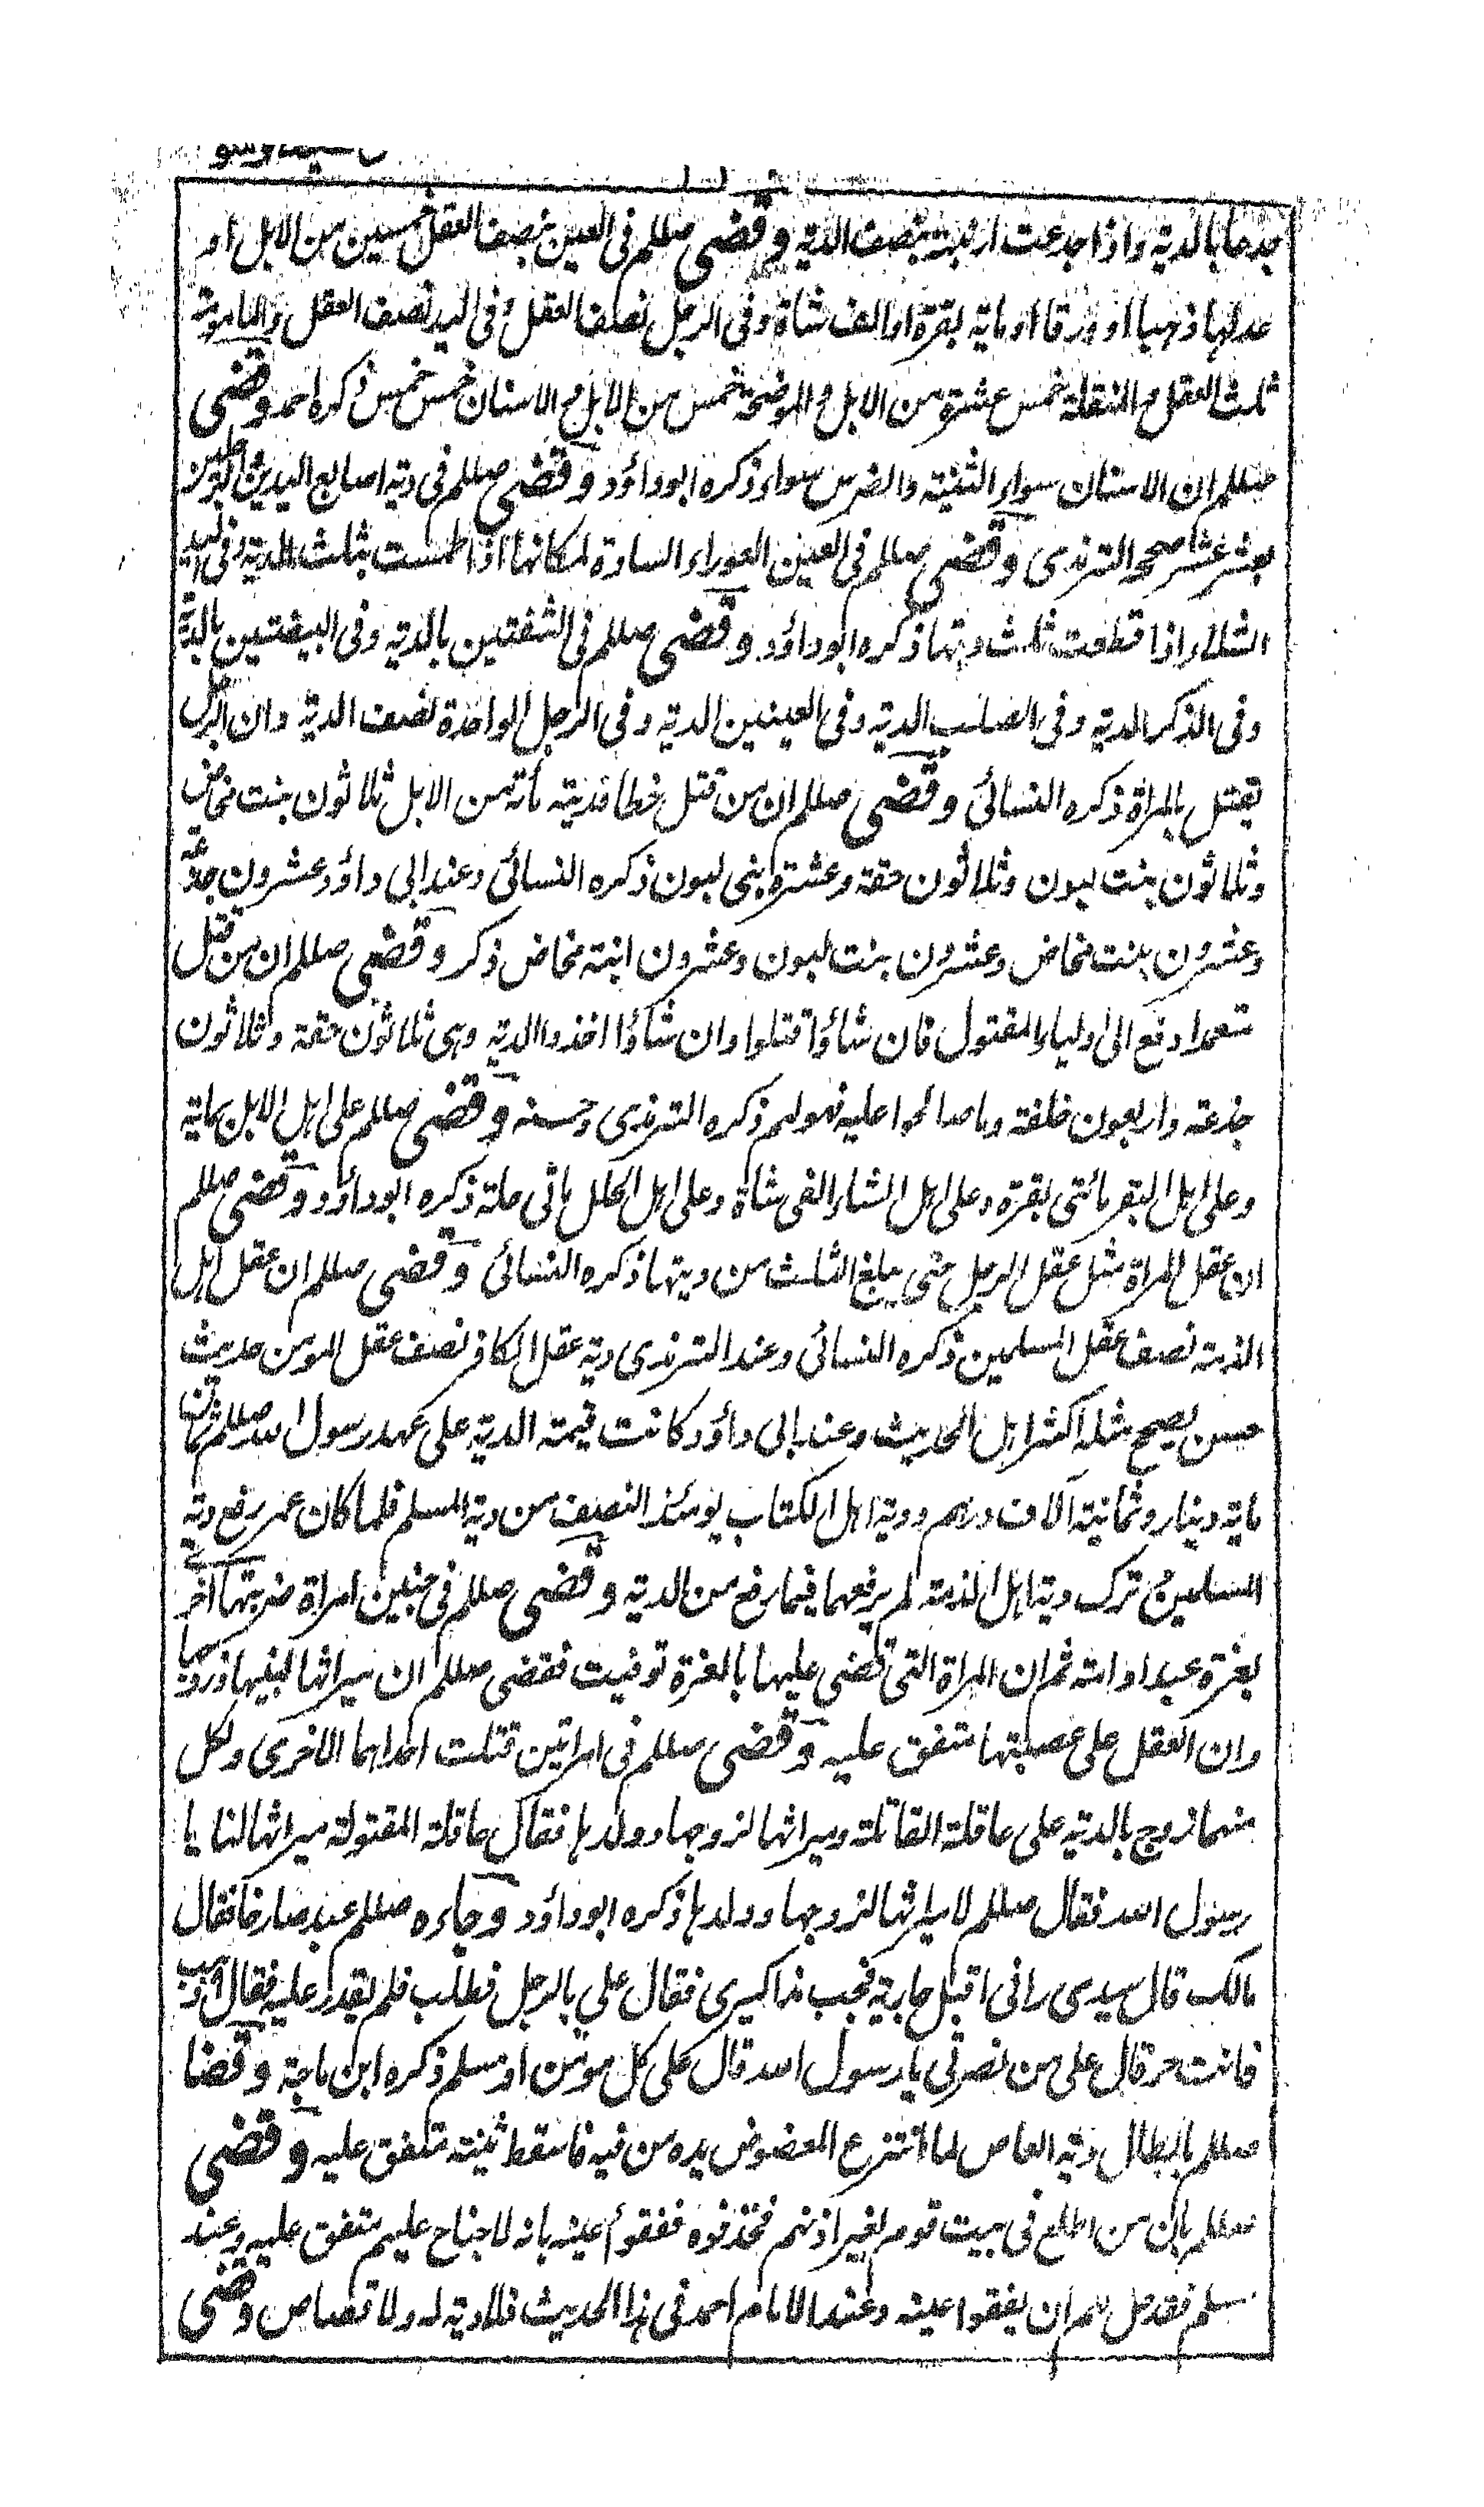 جدعا بالدية واذا جدعت ارنبته بنصف الدية وقضى صللم فى العين بنصف العقل خمسين من الابل او
عدلها ذهبا او ورقا او ماية بقرة او الف شاة وفى الرجل نصف العقل وفى اليد نصف العقل والمامومة
ثلث العقل والمنقلة خمس عشرة من الابل والموضحة خمس من الابل والاسنان خمس خمس ذكره احمد وقضى
صللم ان الاسنان سواء الثنية والضرس سواء ذكره ابوداؤد وقضى صللم فى دية اصابع اليدين والرجلين
بعشر عشر صححه الترمذى وقضى صللم فى العين العوراء السادة لمكانها اذا طمست بثلث الدية وفى اليد
الشلاء اذا قطعت ثلث ديتها ذكره ابوداؤد وقضى صللم فى الشفتين بالدية وفى البيضتين بالدية
وفى الذكر الدية وفى الصلب الدية وفى العينين الدية وفى الرجل الواحدة نصف الدية وان الرجل
يقتل بالمراة ذكره النسائى وقضى صللم ان من قتل خطا فديته مأته من الابل ثلاثون بنت مخاض
وثلاثون بنت لبون وثلاثون حقة وعشرة ابنى لبون ذكره النسائى وعند ابى داؤد عشرون جذعة
وعشرون بنت مخاض وعشرون بنت لبون وعشرون ابنة مخاض ذكر وقضى صللم ان من قتل
متعمدا دفع الى اولياء المقتول فان شاؤا قتلوا وان شاؤا اخذوا الدية وهى ثلاثون حقة وثلاثون
جذعة واربعون خلفة وما صالحوا عليه فهو لهم ذكره الترمذى وحسنه وقضى صللم على اهل الابل بماية
وعلى اهل البقر مائتى بقرة وعلى اهل الشاء الفى شاة وعلى اهل الحلل مائتى حلة ذكره ابوداؤد وقضى صللم
ان عقل المراة مثل عقل الرجل حتى يبلغ الثلث من ديتها ذكره النسائى وقضى صللم ان عقل اهل
الذمة نصف عقل المسلمين ذكره النسائى وعند الترمذى دية عقل الكافر نصف عقل المومن حديث
حسن يصحح مثله اكثر اهل الحديث وعند ابى داؤد كانت قيمة الدية على عهد رسول الله صللم ثمان
ماية دينار وثمانية آلاف درهم ودية اهل الكتاب يومئذ النصف من دية المسلم فلما كان عمر رفع دية
المسلمين وترك دية اهل الذمة لم يرفعها فيما رفع من الدية وقضى صللم فى جنين امراة ضربتها اخرى
بغرة عبد او امة ثم ان المراة التى قضى عليها بالغرة توفيت فقضى صللم ان ميراثها لبنيها وزوجها
وان العقل على عصبتها متفق عليه وقضى صللم فى امراتين قتلت احداهما الاخرى ولكل
منهما زوج بالدية على عاقلة القاتلة وميراثها لزوجها وولدها فقال عاقلة المقتولة ميراثها لنا يا
رسول الله فقال صللم لا ميراثها لزوجها وولدها ذكره ابوداؤد وجاءه صللم عبد صارخا فقال
مالك قال سيدى رانى اقبل جارية فجب مذاكيرى فقال على بالرجل فطلب فلم يقدر عليه فقال اذهب
فانت حر قال على من نصرتى يا رسول الله قال على كل مومن او مسلم ذكره ابن ماجة وقضا
صللم بابطال دية العاض لما انتزع المعضوض يده من فيه فاسقط ثنيته متفق عليه وقضى
صللم بان من اطلع فى بيت قوم بغير اذنهم فخذفوه ففقؤا عينه بانه لا جناح عليهم متفق عليه وعند
مسلم فقد حل لهم ان يفقوا عينه وعند الامام احمد فى هذا الحديث فلا دية له ولا قصاص وقضى